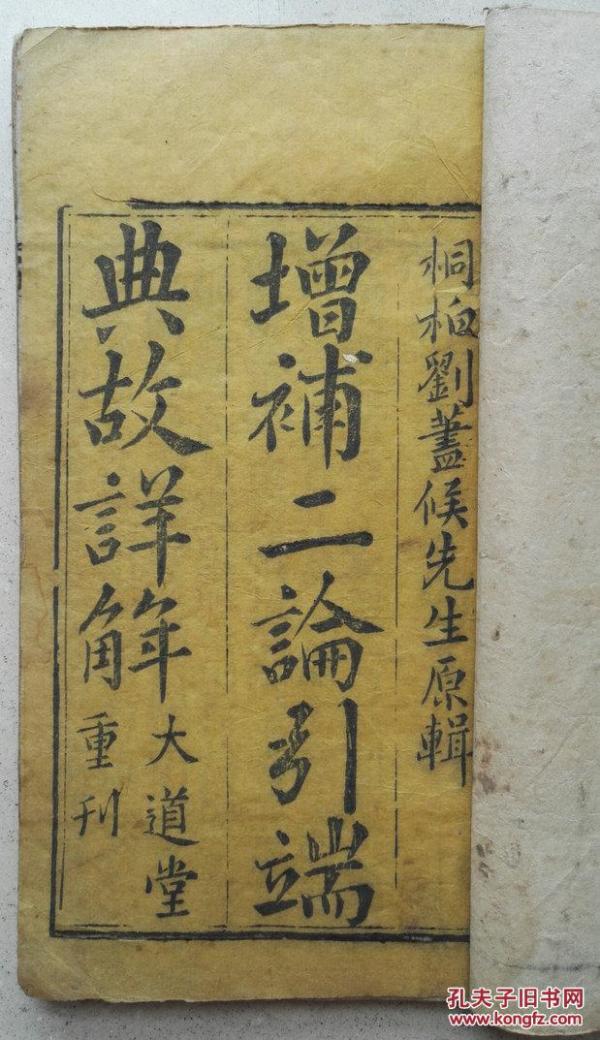 桐柏劉葢候先生原輯
增補二論引端
典故詳觧
大道堂
重刊
孔夫子旧书网
www.kongfz.com